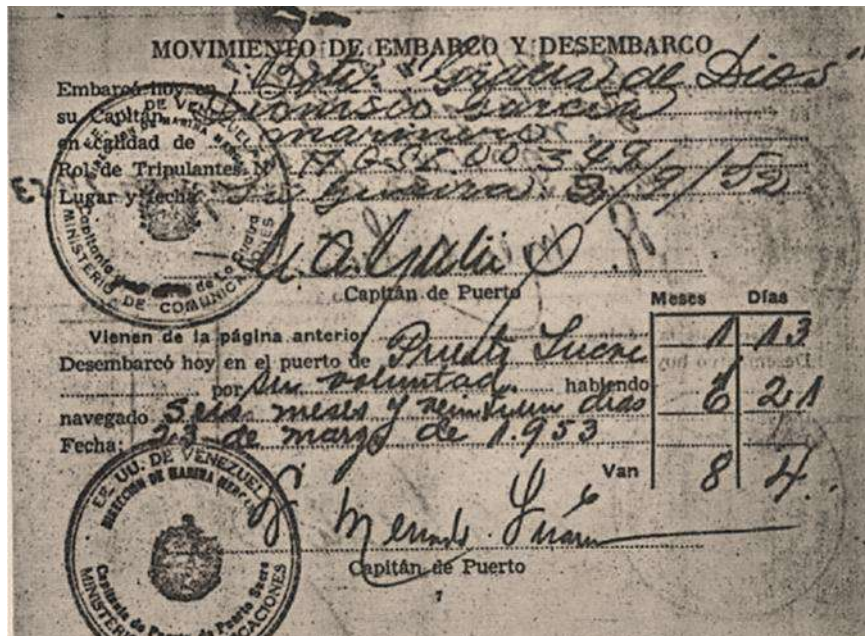 MOVIMIENTO DE EMBARCO Y DESEMBARCO
Embarcó hoy en "Gracia de Dios"
su Capitán Dionisio García
en calidad de marinero
Rol de Tripulantes Nº AGSE 00349
Lugar y fecha La Guaira 2/9/52
Capitán de Puerto
Meses Días
Vienen de la página anterior 1 13
Desembarcó hoy en el puerto de Puerto Sucre
por su voluntad habiendo 6 21
navegado Seis meses y veintiun dias
Fecha: 23 de marzo de 1.953
Van 8 4
Capitán de Puerto
7
EE. UU. DE VENEZUELA
DIRECCION DE MARINA MERCANTE
Capitanía de Puerto de La Guaira
MINISTERIO DE COMUNICACIONES
EE. UU. DE VENEZUELA
DIRECCION DE MARINA MERCANTE
Capitanía de Puerto de Puerto Sucre
MINISTERIO DE COMUNICACIONES